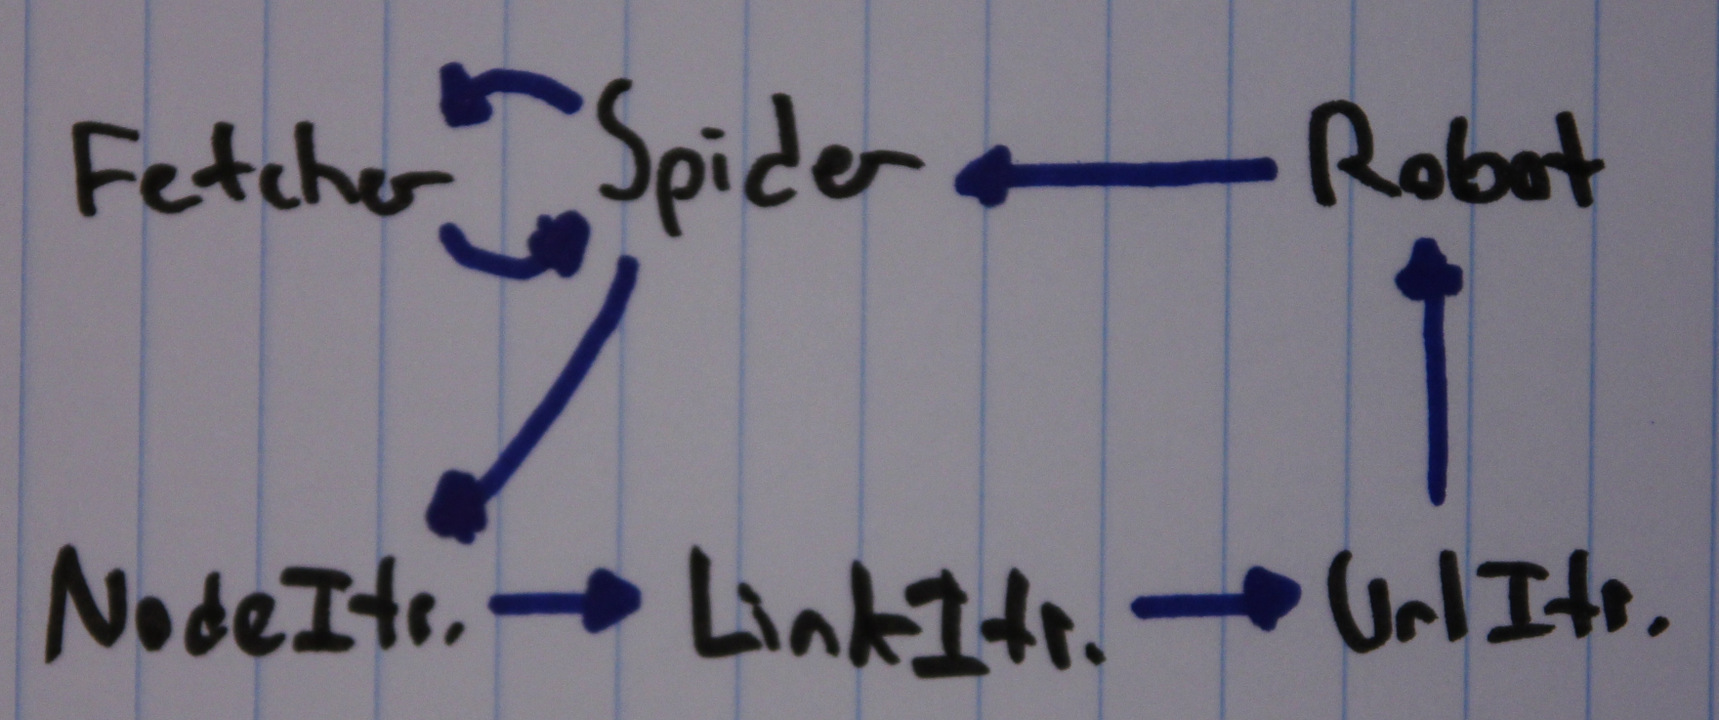 Fetcher Spider Robot
NodeItr. LinkItr. UrlItr.